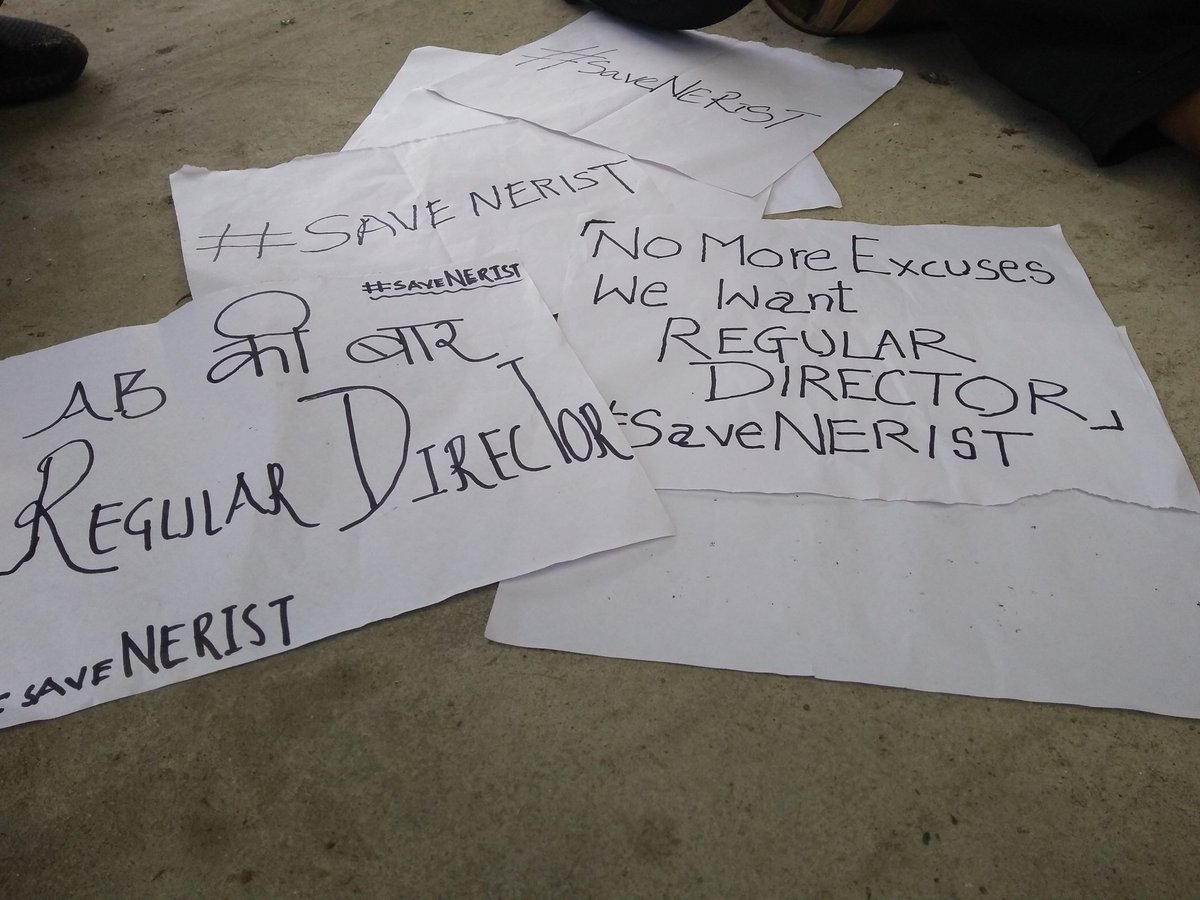 #SaveNERIST
#SAVE NERIST
#SAVENERIST
AB की बार
REGULAR DIRECTOR
SAVE NERIST
「No More Excuses
We Want
REGULAR
DIRECTOR」
#SaveNERIST